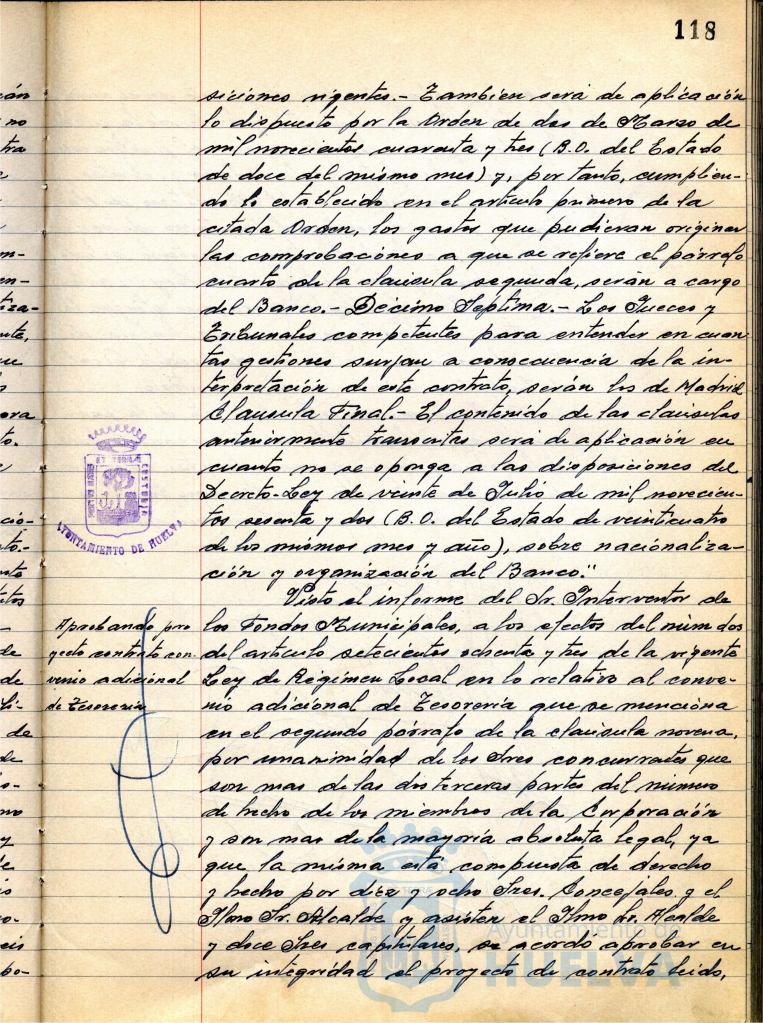 118
siciones vigentes.- Tambien será de aplicación
lo dispuesto por la Orden de dos de Marzo de
mil novecientos cuarenta y tres (B.O. del Estado
de doce del mismo mes) y, por tanto, cumplien-
do lo establecido en el artículo primero de la
citada Orden, los gastos que pudieran originar
las comprobaciones a que se refiere el párrafo
cuarto de la clausula segunda, serán a cargo
del Banco.- Décimo Septima.- Los Jueces y
Tribunales competentes para entender en cuan
tas gestiones surjan a consecuencia de la in-
terpretación de este contrato, serán los de Madrid
Clausula Final.- El contenido de las clausulas
anteriormente transcritas será de aplicación en
cuanto no se oponga a las disposiciones del
Decreto-Ley de veinte de Julio de mil novecien-
tos sesenta y dos (B.O. del Estado de veinticuatro
de los mismos mes y año), sobre nacionaliza-
ción y organización del Banco."
AYUNTAMIENTO DE HUELVA
Visto el informe del Sr. Interventor de
los Fondos Municipales, a los efectos del núm dos
del artículo setecientos ochenta y tres de la vigente
Ley de Regimen Local en lo relativo al conve-
nio adicional de Tesorería que se menciona
en el segundo párrafo de la clausula novena,
por unanimidad de los Sres concurrantes que
son mas de las dos terceras partes del número
de hecho de los miembros de la Corporación
y son mas de la mayoría absoluta legal, ya
que la misma está compuesta de derecho
y hecho por diez y ocho Sres. Concejales y el
Ilmo Sr. Alcalde y asisten el Ilmo Sr. Alcalde
y doce Sres capitulares, se acordó aprobar en
su integridad el proyecto de contrato leido,
Aprobando pro
yecto contrato con
venio adicional
de Tesorería
Ayuntamiento de
HUELVA